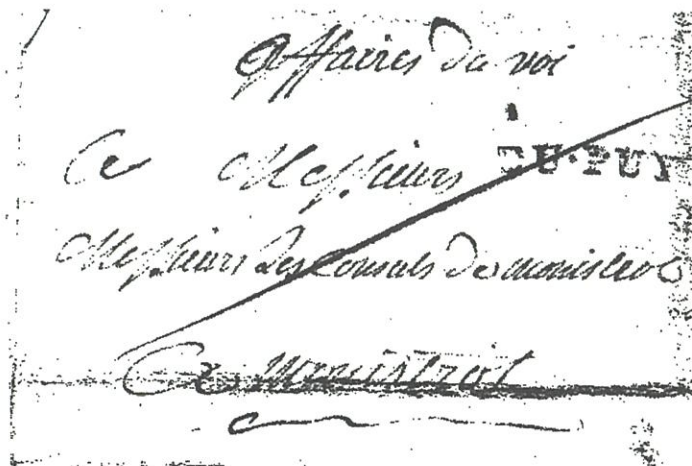 Affaires du roi
A Messieurs
DU·PUY
Messieurs Les Consuls de monistrol
A monistrol